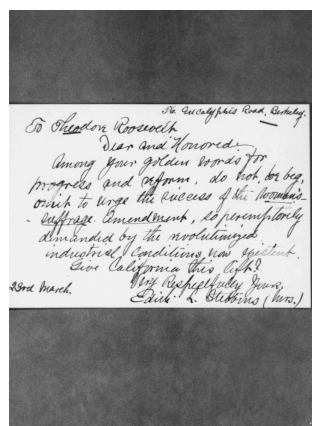 Eucalyptus Road, Berkeley.
To Theodore Roosevelt
Dear and Honored,
Among your golden words for
progress and reform, do not, we beg,
omit to urge the success of the Woman's
- suffrage amendment, so peremptorily
demanded by the revolutionized
industrial conditions now existent.
Give California this lift?
Very Respectfully Yours,
23rd March.
Edith L. Stebbins (Mrs.)